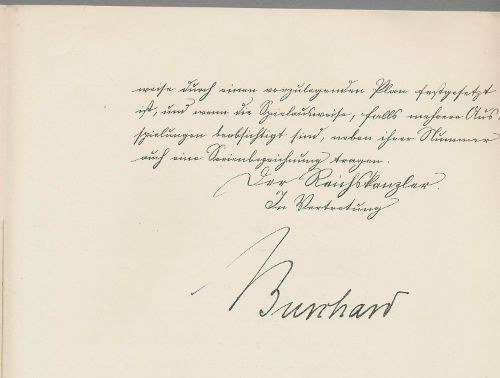 weise durch einen vorzulegenden Plan festgesetzt
ist, und wenn die Spielausweise, falls mehrere Aus-
spielungen beabsichtigt sind, neben ihrer Nummer
auch eine Serienbezeichnung tragen.
Der Reichskanzler.
In Vertretung
Burchard